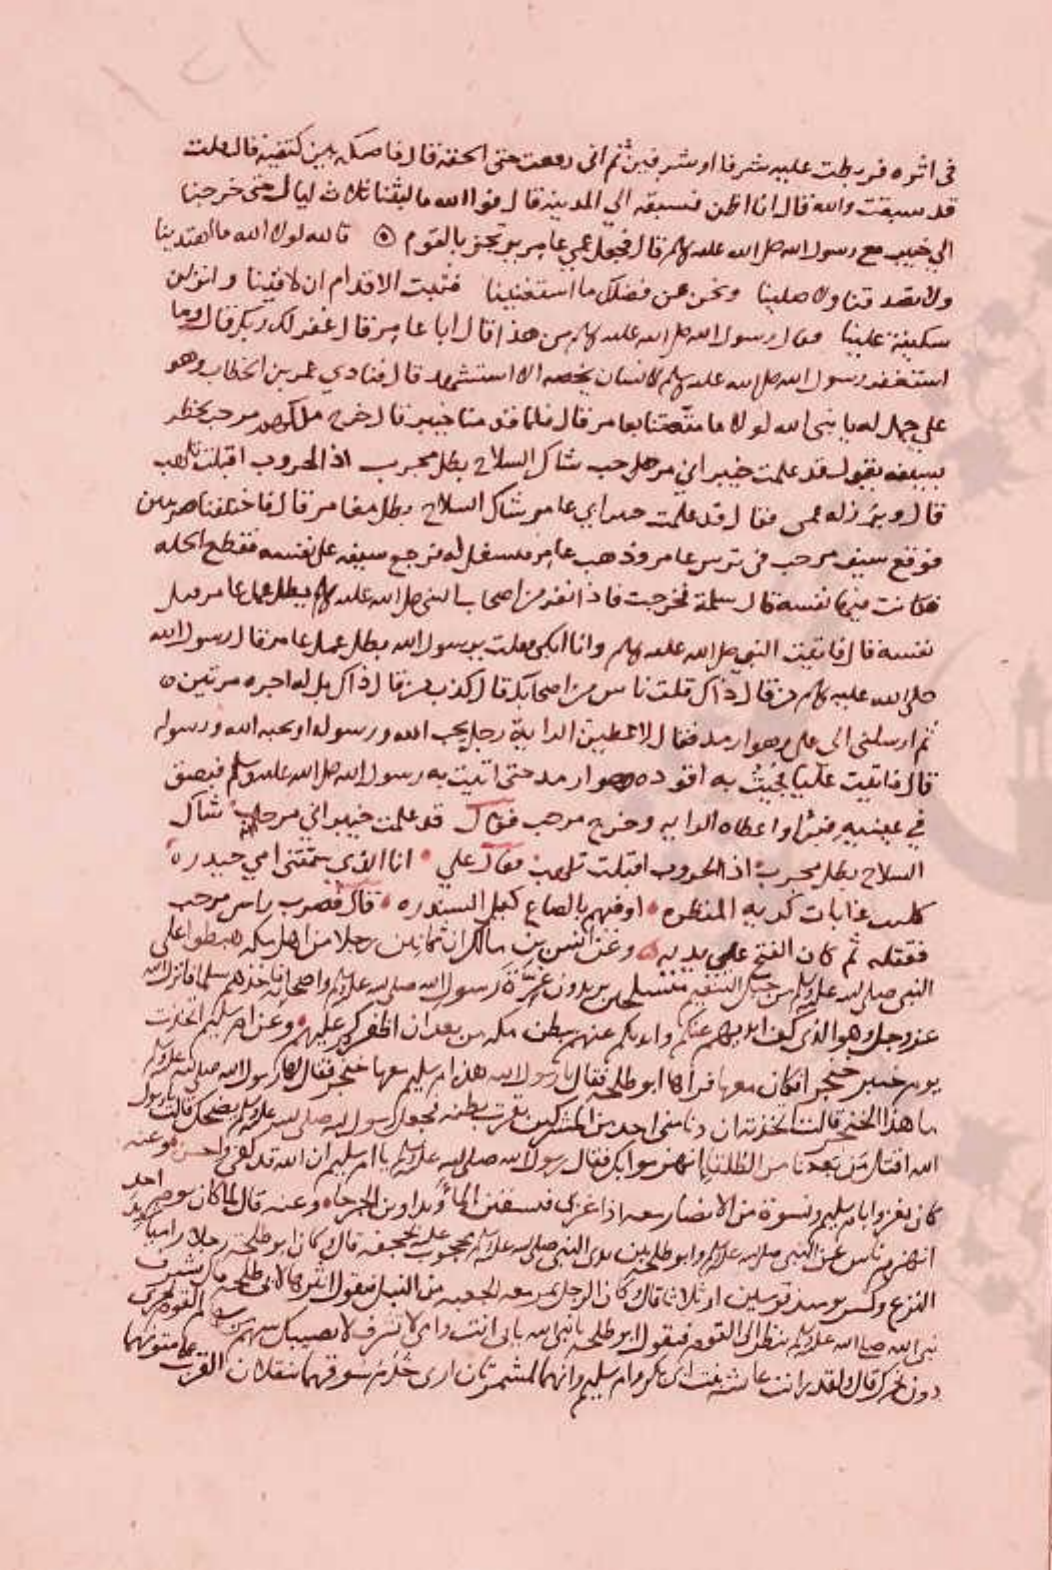 في اثره فربطت عليه شرفا او شرفين ثم اني رفعت حتى الحقه قال فاصكه بين كتفيه قال قلت
قد سبقت والله قال انا اظن فسبقته الي المدينة قال فوا الله ما لبثنا ثلاث ليال حتى خرجنا
الي خيبر مع رسول الله صلى الله عليه وسلم قال فجعل عمي عامر يرتجز بالقوم تالله لولا الله ما اهتدينا
ولا تصدقنا ولا صلينا ونحن عن فضلك ما استغنينا فثبت الاقدام ان لاقينا وانزلن
سكينة علينا فقال رسول الله صلى الله عليه وسلم من هذا قال انا عامر قال غفر لك ربك قال وما
استغفر رسول الله صلى الله عليه وسلم لانسان يخصه الا استشهد قال فنادي عمر بن الخطاب وهو
علي جمل له يا نبى الله لولا ما متعتنا بعامر قال فلما قدمنا خيبر قال خرج ملكهم مرحب يخطر
بسيفه يقول قد علمت خيبر اني مرحب شاك السلاح بطل مجرب اذ الحروب اقبلت تلهب
قال وبرز له عمى فقال قد علمت خيبر اني عامر شاك السلاح بطل مغامر قال فاختلفا ضربتين
فوقع سيف مرحب في ترس عامر وذهب عامر يسفل له فرجع سيفه على نفسه فقطع اكحله
فكانت فيها نفسه قال سلمة فخرجت فاذا نفر من اصحاب النبي صلى الله عليه وسلم بطل عمل عامر قتل
نفسه قال فاتيت النبي صلى الله عليه وسلم وانا ابكي فقلت يرسول الله بطل عمل عامر قال رسول الله
صلى الله عليه وسلم من قال ذاك قلت ناس من اصحابك قال كذب من قال ذاك بل له اجره مرتين
ثم ارسلني الى علي وهو ارمد فقال لاعطين الراية رجل يحب الله ورسوله او يحبه الله ورسوله
قال فاتيت عليا فجئت به اقوده وهو ارمد حتى اتيت به رسول الله صلى الله عليه وسلم فبصق
في عينيه فبرأ واعطاه الرايه وخرج مرحب فقال قد علمت خيبر اني مرحب شاك
السلاح بطل مجرب اذ الحروب اقبلت تلهب فقال علي انا الذي سمتني امي حيدره
كليث غابات كريه المنظره اوفيهم بالصاع كيل السندره قال فضرب راس مرحب
فقتله ثم كان الفتح على يديه وعن انس بن مالك ان ثمانين رجلا من اهل مكه هبطوا على
النبي صلى الله عليه وسلم من جبل التنعيم متسلحين يريدون غرة رسول الله صلى الله عليه وسلم واصحابه فاخذهم سلما فانزل الله
عز وجل وهو الذي كف ايديهم عنكم وايديكم عنهم ببطن مكه من بعد ان اظفركم عليهم وعنه ام سليم اتخذت
يوم خيبر خنجرا فكان معها فراها ابو طلحه فقال يا رسول الله هذه ام سليم معها خنجر فقال لها رسول الله صلى الله عليه وسلم
ما هذا الخنجر قالت اتخذته ان دنا مني احد من المشركين بقرت بطنه فجعل رسول الله صلى الله عليه وسلم يضحك قالت يا رسول
الله اقتل من بعدنا من الطلقا انهزموا بك فقال رسول الله صلى الله عليه وسلم يا ام سليم ان الله قد كفى واحسن وعنه
كان يغزوا بام سليم ونسوة من الانصار معه اذا غزى فيسقين الماء ويداوين الجرحا وعنه قال لما كان يوم احد
انهزم ناس عن النبي صلى الله عليه وسلم وابو طلحه بين يدي النبي صلى الله عليه وسلم مجوب عليه بحجفه قال وكان ابو طلحة رجلا راميا شديد
النزع وكسر يومئذ قوسين او ثلاثا قال وكان الرجل يمر معه الجعبه من النبل فيقول انثرها لابي طلحه قال يشرف
نبي الله صلى الله عليه وسلم ينظر الى القوم فيقول ابو طلحه يا نبي الله بابي انت وامي لا تشرف لا يصيبك سهم من سهام القوم نحري
دون نحرك قال ولقد رايت عائشه بنت ابي بكر وام سليم وانهما لمشمرتان ارى خدم سوقهما ينقلان القرب على متونهما